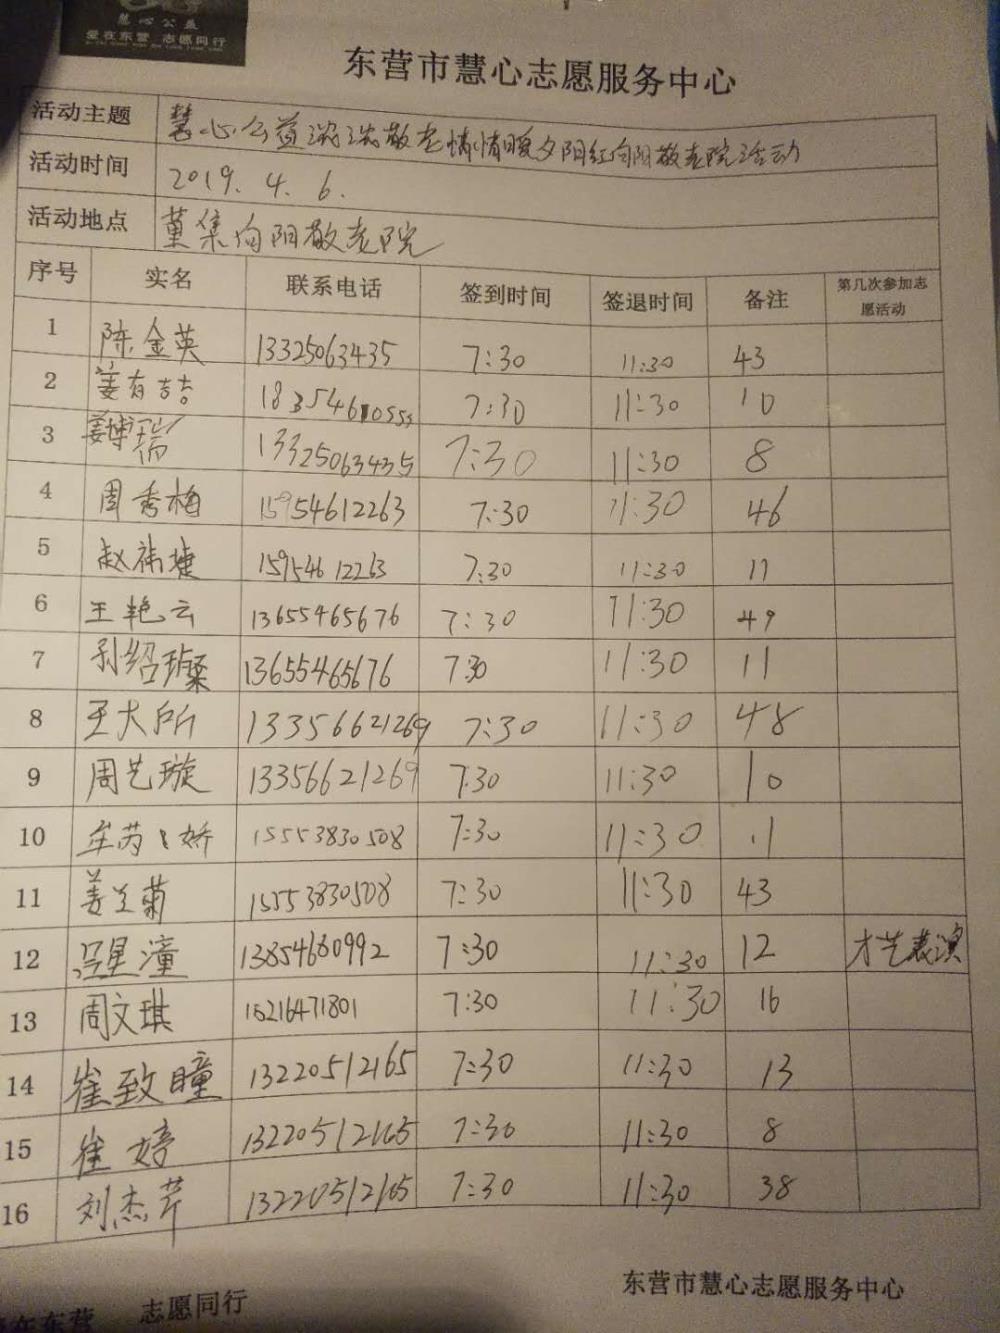 慧心公益
爱在东营 志愿同行
东营市慧心志愿服务中心
活动主题 慧心公益浓浓敬老情情暖夕阳红向阳敬老院活动
活动时间 2019. 4. 6.
活动地点 董集向阳敬老院
序号 实名 联系电话 签到时间 签退时间 备注 第几次参加志愿活动
1 陈金英 13325063435 7:30 11:30 43
2 姜有喆 7:30 11:30 10
3 姜博瑞 13325063435 7:30 11:30 8
4 周秀梅 15954612263 7:30 11:30 46
5 赵祎婕 15954612263 7:30 11:30 11
6 王艳云 13655465676 7:30 11:30 49
7 孙绍 13655465676 7:30 11:30 11
8 王大所 13356621269 7:30 11:30 48
9 周艺璇 13356621269 7:30 11:30 10
10 牟芮 娇 15553830508 7:30 11:30 11
11 姜兰菊 15553830508 7:30 11:30 43
12 吕星潼 13854660992 7:30 11:30 12 才艺表演
13 周文琪 15216471801 7:30 11:30 16
14 崔致瞳 13220512165 7:30 11:30 13
15 崔婷 13220512165 7:30 11:30 8
16 刘杰芹 13220512165 7:30 11:30 38
东营市慧心志愿服务中心
爱在东营 志愿同行